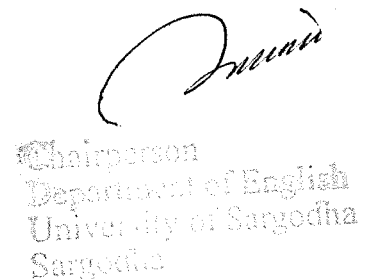 Chairperson
Department of English
University of Sargodha
Sargodha